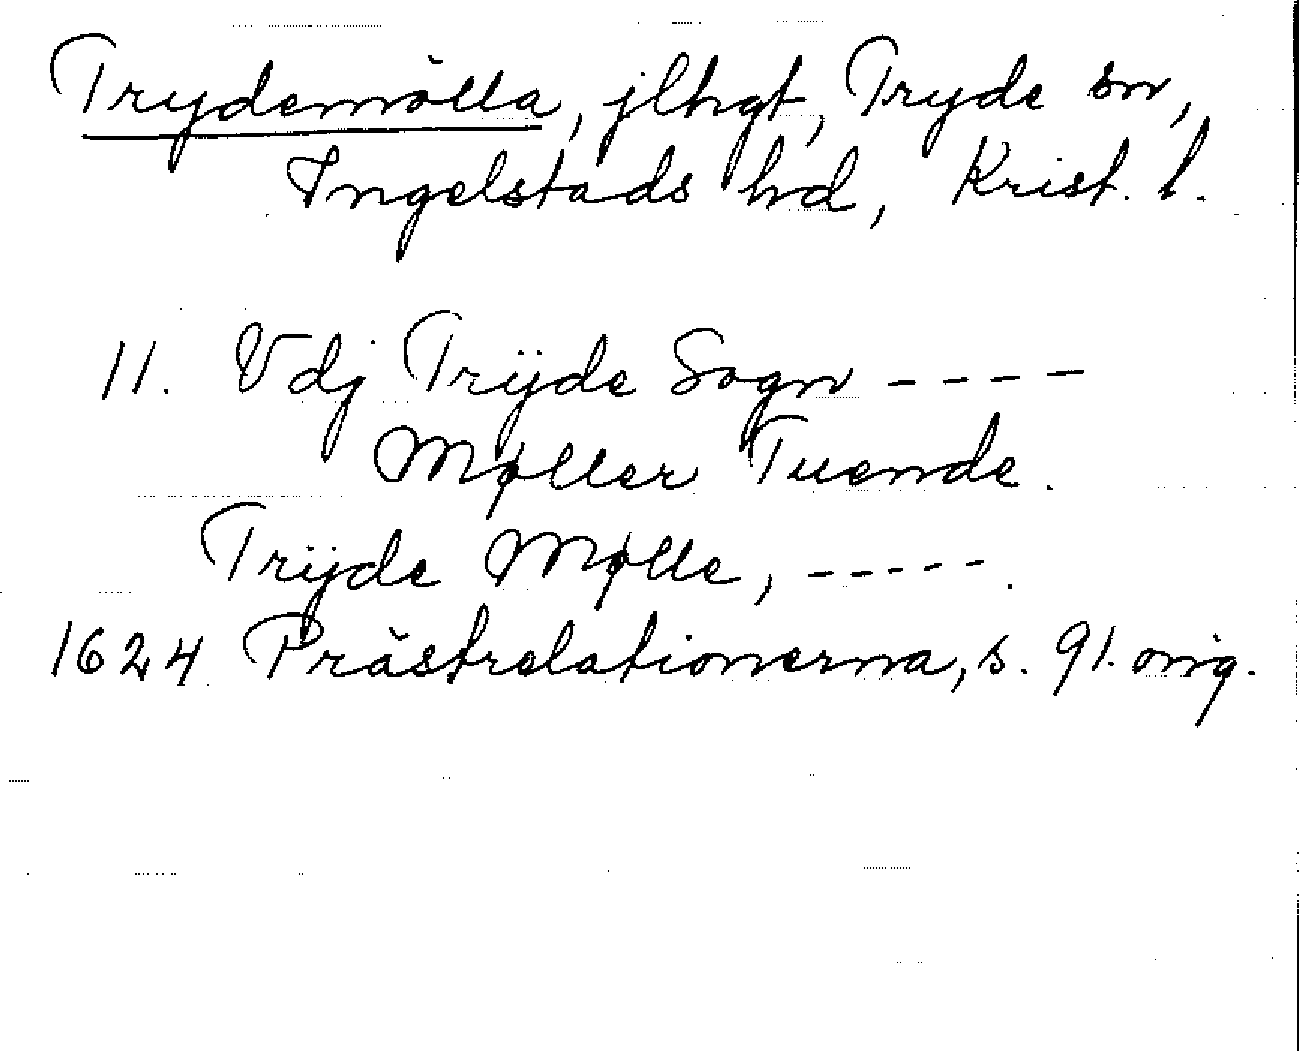 Trydemölla, jlhgt, Tryde sn,
Ingelstads hd, Krist. l.
11. Vdj Trÿde Sogn - - - -
Møller Tuende.
Trÿde Mølle, - - - - - .
1624 Prästrelationerna, s. 91. orig.